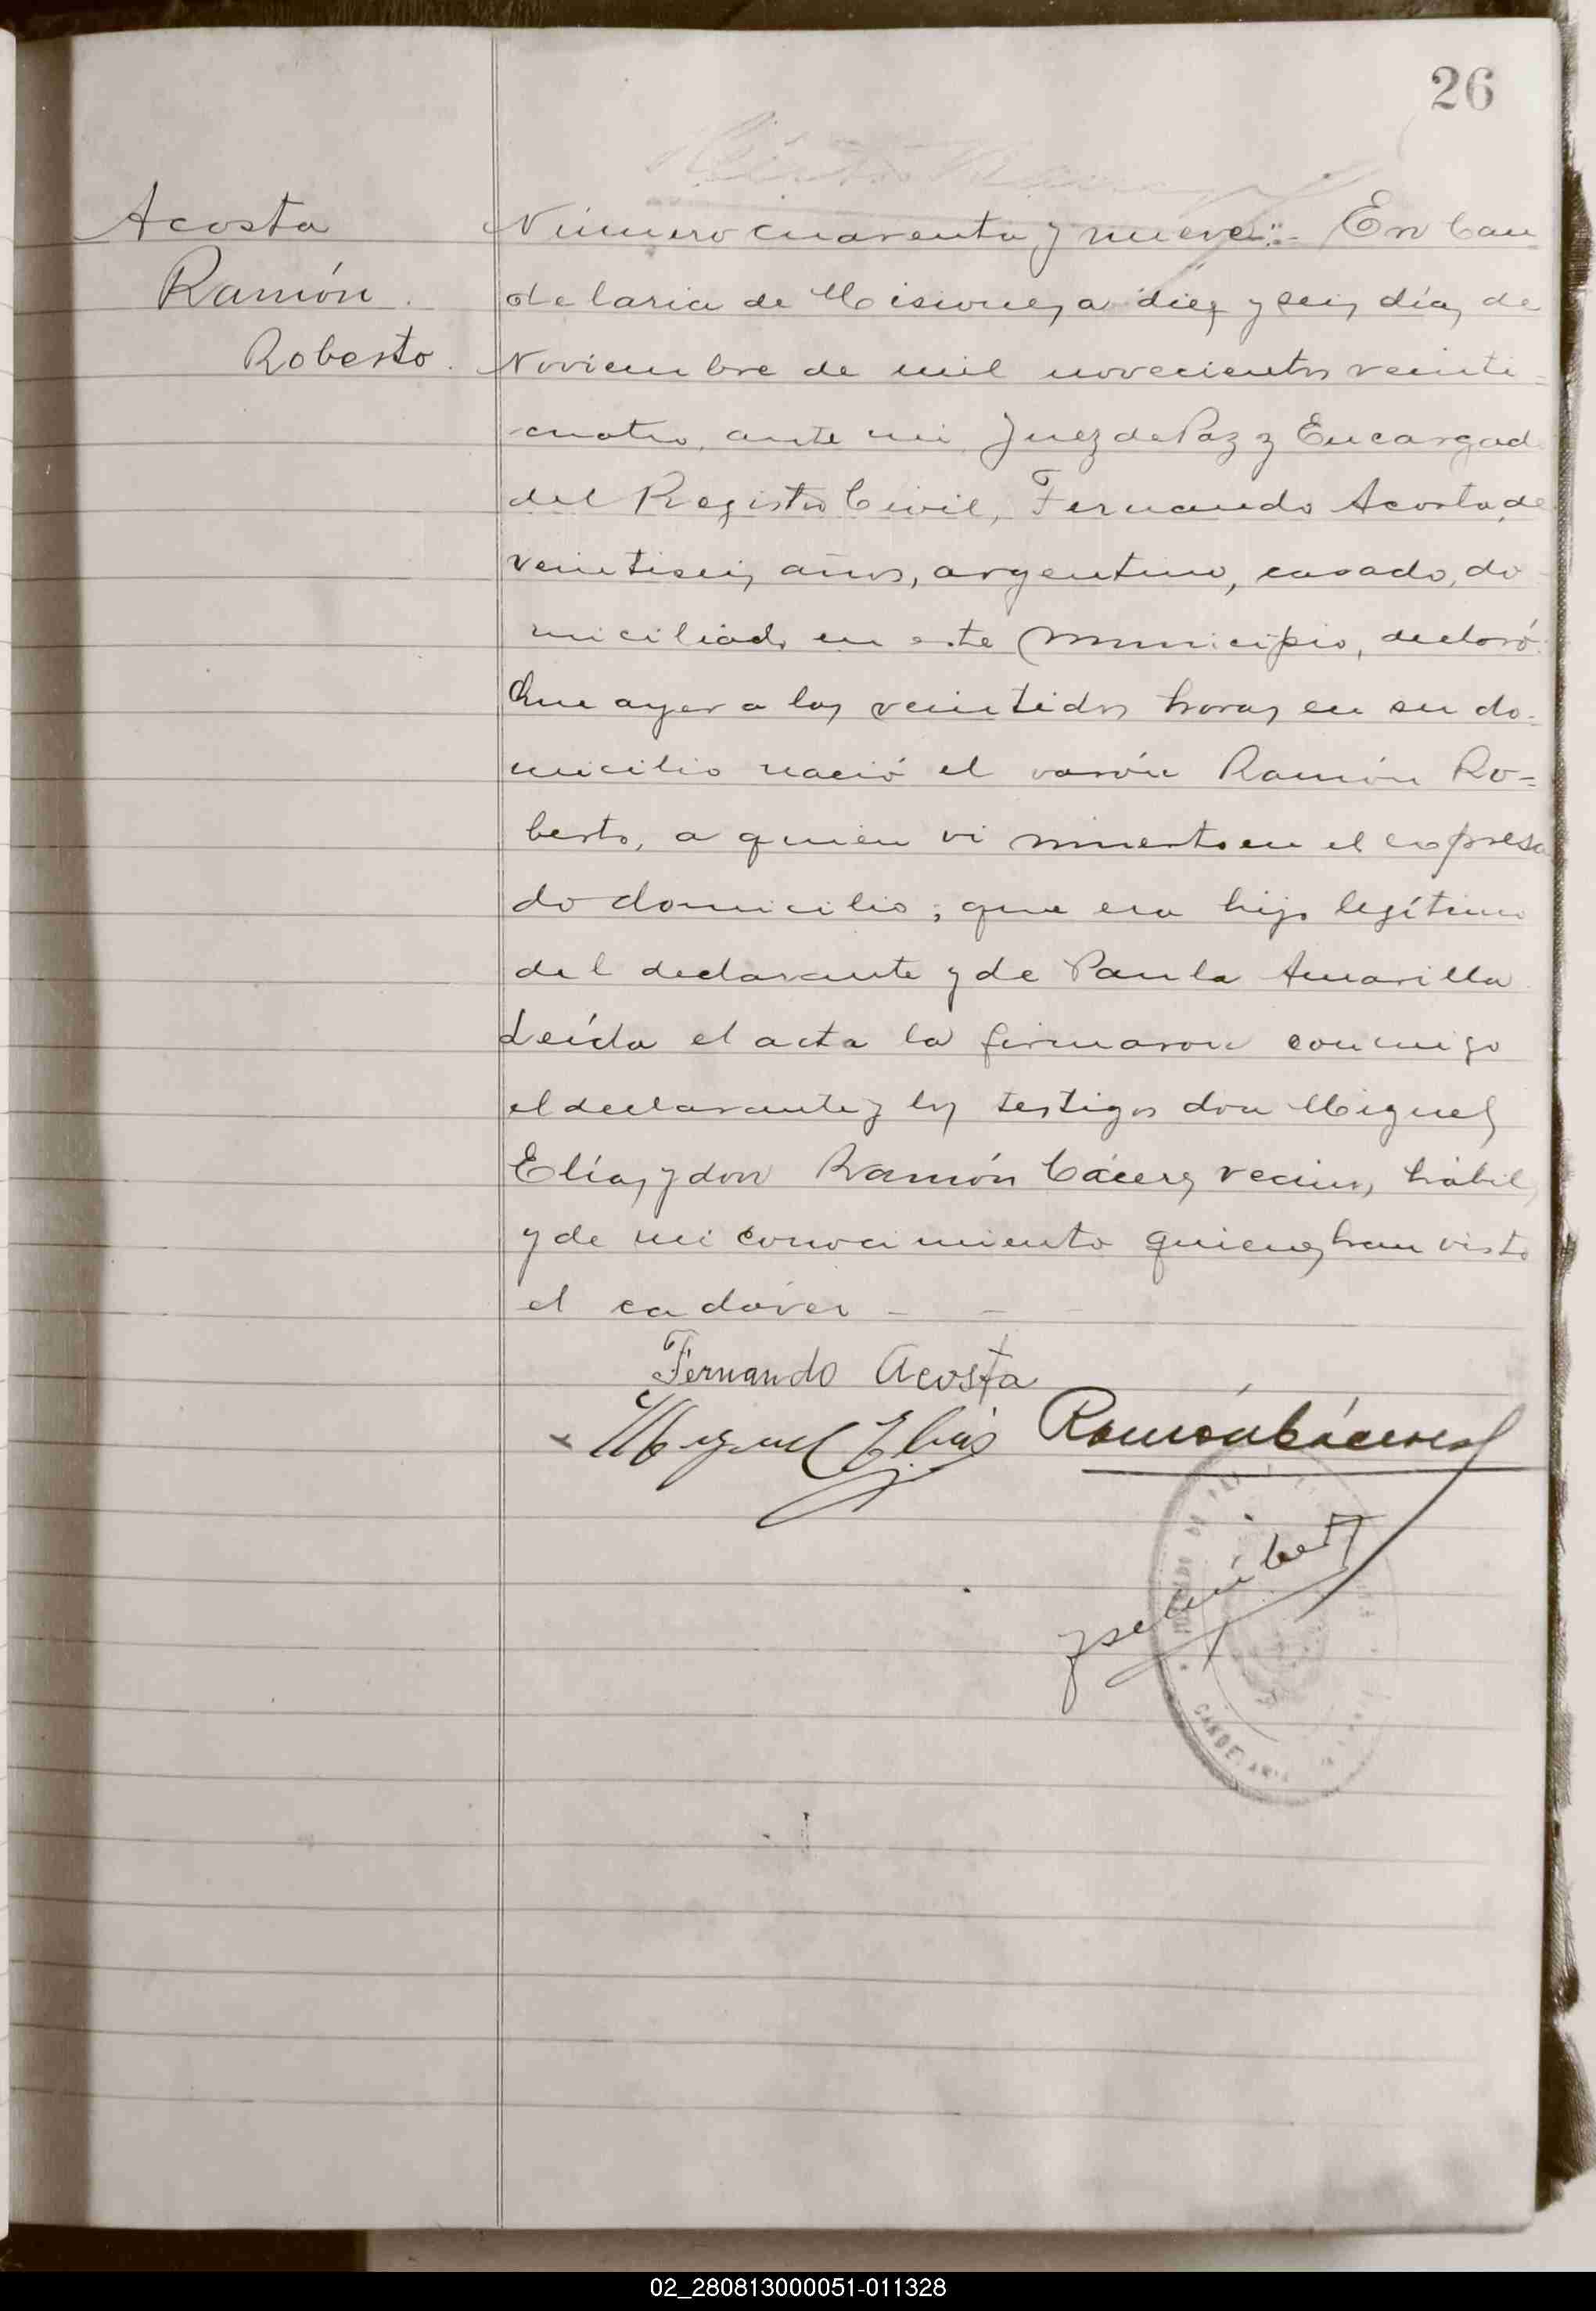 26
Acosta
Ramón
Roberto.
Número cuarenta y nueve:- En Can
delaria de Misiones, a diez y seis días de
Noviembre de mil novecientos veinti=
cuatro, ante mi Juez de Paz y Encargado
del Registro Civil, Fernando Acosta, de
veintiseis años, argentino, casado, do
miciliado en este Municipio, declaró:
Que ayer a las veintidos horas en su do=
micilio nació el varón Ramón Ro=
berto, a quien vi muerto en el expresa
do domicilio; que era hijo legítimo
del declarante y de Paula Amarilla
Leída el acta la firmaron conmigo
el declarante y los testigos don Miguel
Elías y don Ramón Cáceres vecinos, hábiles
y de mi conocimiento quienes han visto
el cadáver - - -
Fernando Acosta
Miguel Elías Ramón Cáceres
JUZGADO DE PAZ
CANDELARIA
02_280813000051-011328